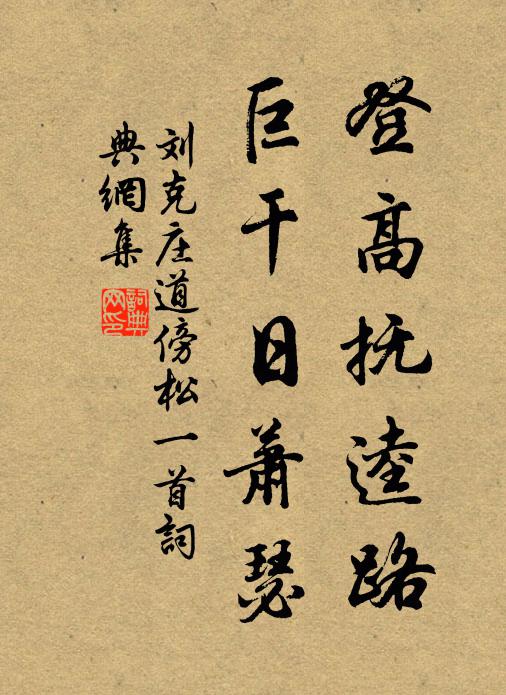 登高抚逵路
巨干日萧瑟
刘克庄道傍松一首詞
典網集
詞典網印